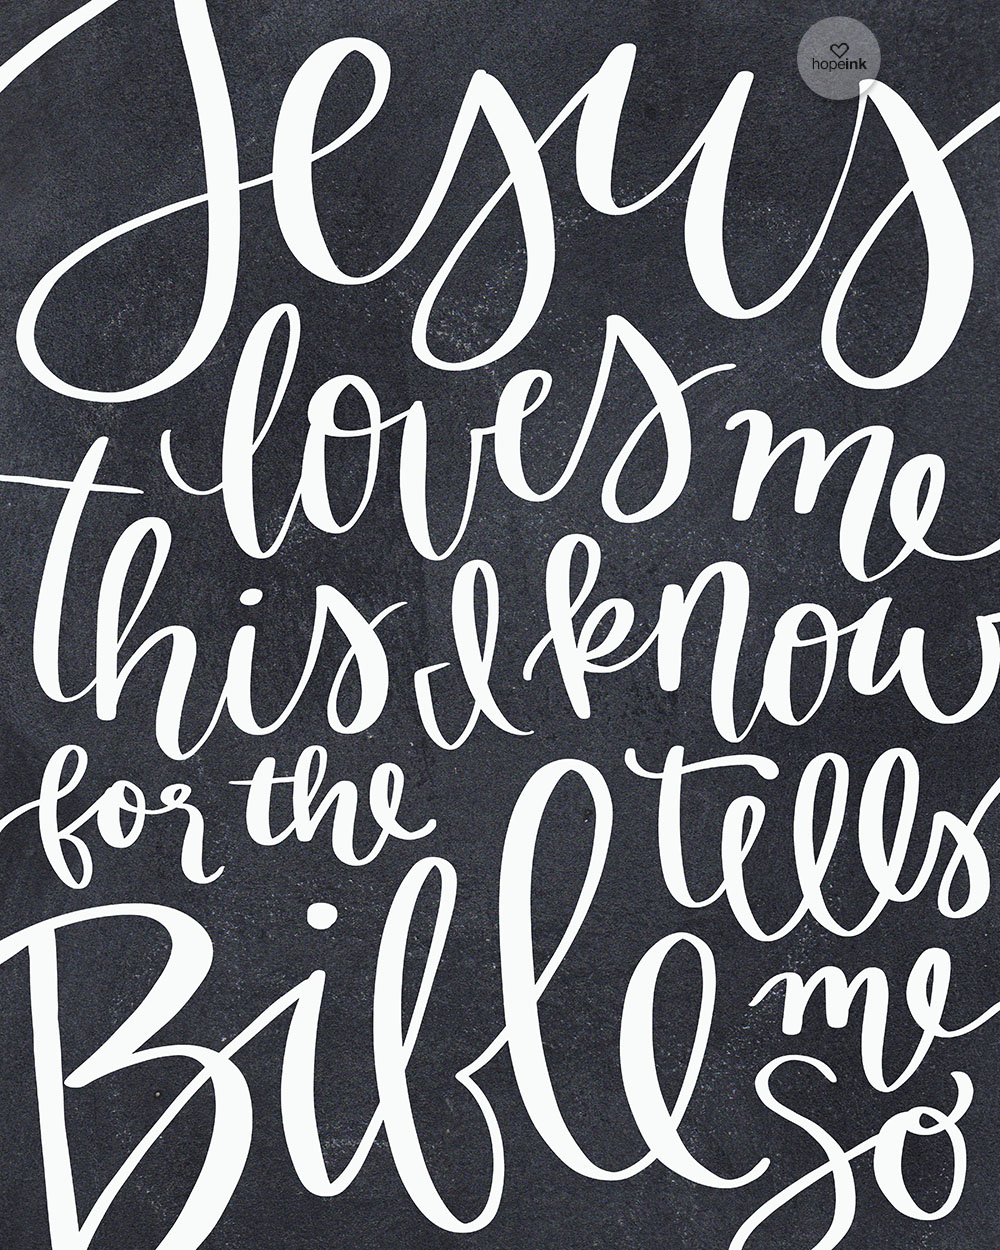 hopeink
Jesus
loves me
this I know
for the tells
Bible me
so